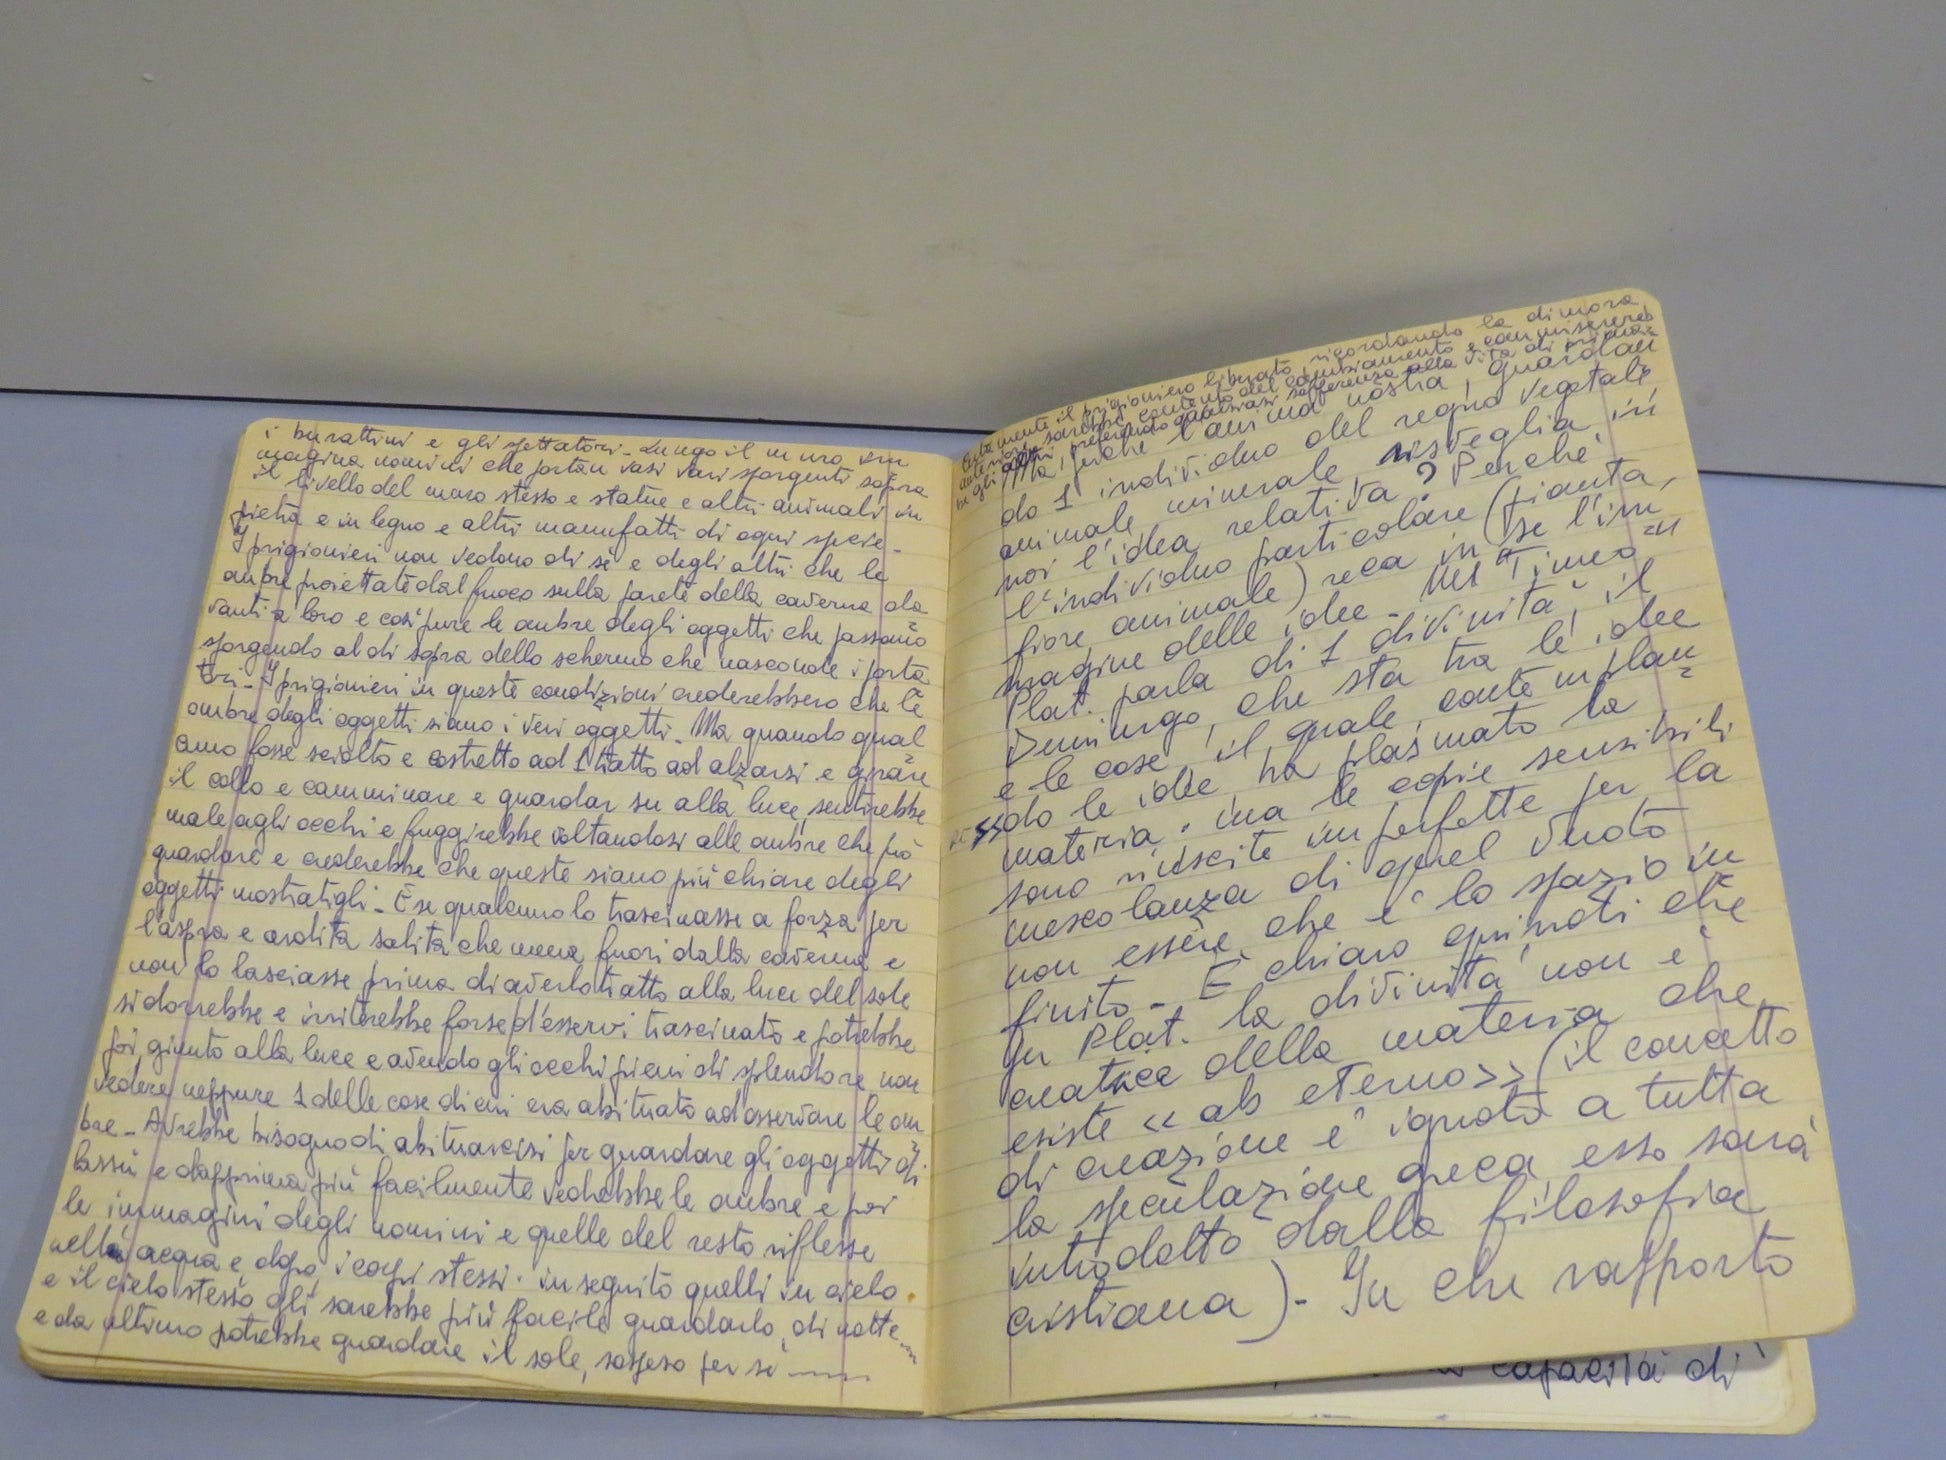 i burattini e gli spettatori - Lungo il muro im
magina uomini che portan vasi vari sporgenti sopra
il livello del muro stesso e statue e altri animali in
pietra e in legno e altri manufatti di ogni specie -
I prigionieri non vedono di sè e degli altri che le
ombre proiettate dal fuoco sulla parete della caverna da
vanti a loro e così pure le ombre degli oggetti che passano
sporgendo al di sopra dello schermo che nasconde i porta
tori - I prigionieri in queste condizioni crederebbero che le
ombre degli oggetti siano i veri oggetti - Ma quando qual
cuno fosse sciolto e costretto ad 1 tratto ad alzarsi e girare
il collo e camminare e guardar su alla luce, sentirebbe
male agli occhi e fuggirebbe voltandosi alle ombre che può
guardare e crederebbe che queste siano più chiare degli
oggetti mostratigli - E se qualcuno lo trascinasse a forza per
l'aspra e ardita salita che mena fuori dalla caverna e
non lo lasciasse prima di averlo tratto alla luce del sole
si dorrebbe e irriterebbe forse d'esservi trascinato e potrebbe
poi, giunto alla luce e avendo gli occhi pieni di splendore non
vedere neppure 1 delle cose di cui era abituato ad osservare le om
bre - Avrebbe bisogno di abituarcisi per guardare gli oggetti di
lassù e dapprima più facilmente vedrebbe le ombre e poi
le immagini degli uomini e quelle del resto riflesse
nell' acqua e dopo, i corpi stessi. in seguito quelli in cielo.
e il cielo stesso gli sarebbe più facile guardarlo, di notte
e da ultimo potrebbe guardare il sole, sospeso per sè
mente il prigioniero liberato, ricordando la dimora
anteriore sarebbe contento del cambiamento e commiserereb
be gli altri, preferendo qualsiasi sofferenza alla vita di prima
Ma, perché l'anima nostra, guardan
do 1 individuo del regno vegetale
animale, minerale, risveglia in
noi l'idea relativa? Perchè
l'individuo particolare (pianta,
fiore, animale) reca in se l'im
magine delle idee - Nel "Timeo"
Plat. parla di 1 divinità, il
Demiurgo, che sta tra le idee
e le cose il quale, contemplan
do le idee, ha plasmato la
materia; ma le copie sensibili
sono riuscite imperfette per la
mescolanza di quel vuoto
non essere che e' lo spazio in
finito - E' chiaro quindi che
in Plat. la divinità non e'
creatrice della materia che
esiste << ab eterno >> (il concetto
di creazione e' ignoto a tutta
la speculazione greca, esso sarà
introdotto dalla filosofia
cristiana) - In che rapporto
capacità di